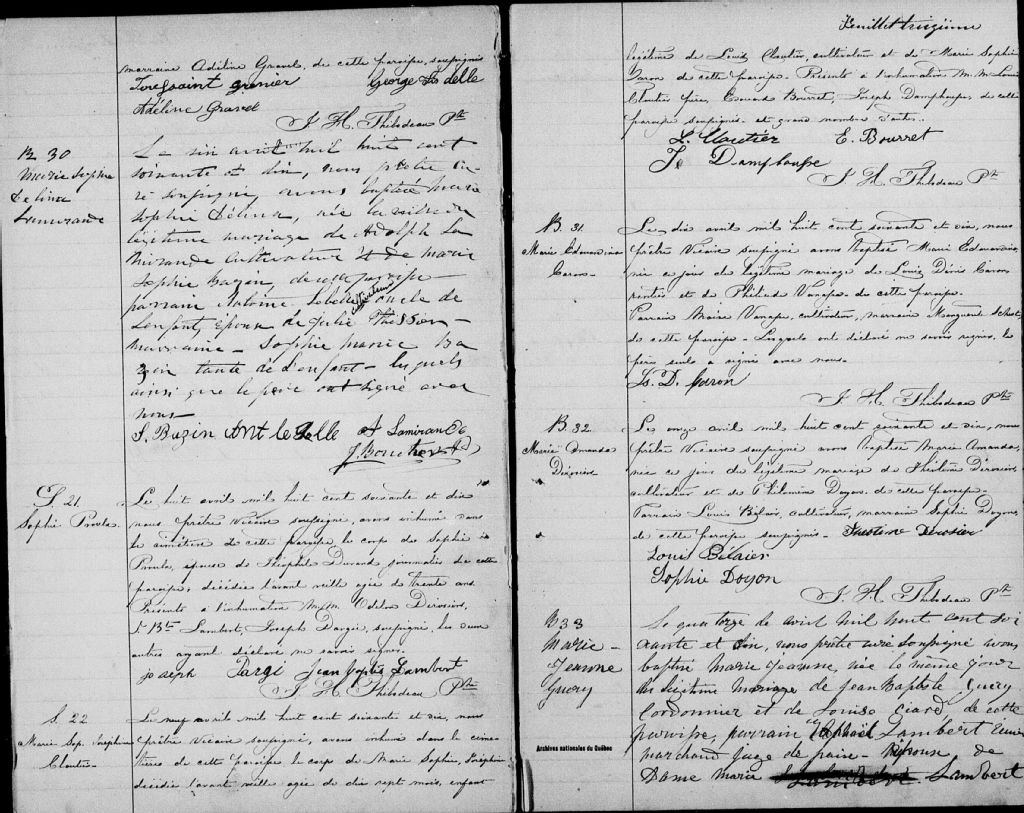 marraine Adéline Gravel, de cette paroisse, soupsignés
Toussaint grenier George Lsdelle
Adéline Gravel
J. H. Thibodeau Ptr
B. 30
Marie Sophie
Zelina
Lamirande
Le six avril mil huit cent
soixante et dix, nous prêtre cu-
ré soupsigné, avons baptisé marie
Sophie Zélina, née la veille du
légitime mariage de Adolph La
mirande cultivateur et de marie
Sophie Bazin, de cette paroisse
parrain Antoine Lebelle cultivateur oncle de
l'enfant, époux de julie
marraine Sophie marie Ba
zin tante de l'enfant lesquels
ainsi que le père ont signé avec
nous
S. Bazin Ant leBelle A Lamirande
J. Boucher Ptr
S. 21
Sophie Proulx
Le huit avril mil huit cent soixante et dix
nous prêtre Vicaire soupsigné, avons inhumé dans
le cimétière de cette paroisse, le corps de Sophie
Proulx, épouse de Théophile Durand journalier de cette
paroisse, décédée l'avant veille agée de trente ans
Présents à l'inhumation M.M. Odilon Dirosier,
J. Bte Lambert, Joseph Dargi, soupsigné, les deux
autres ayant déclaré ne savoir signer.
joseph Dargi Jean Baptis Lambert
J. H. Thibodeau Ptr
S. 22
Marie Sop. Joséphine
Cloutier
Le neuf avril mil huit cent soixante et dix, nous
prêtre Vicaire soupsigné, avons inhumé dans le cimé-
tière de cette paroisse le corps de Marie Sophie Joséphine
décédée l'avant veille agée de dix sept mois, enfant
Feuillet treizième
légitime de Louis Cloutier, cultivateur et de Marie Sophie
Caron de cette paroisse. Présents à l'inhumation M.M. Louis
Cloutier père, Edouard Bourret, Joseph Damphousse, de cette
paroisse soupsignés et grand nombre d'autres.
L. Cloutier E. Bourret
Js Damphousse
J. H. Thibodeau Ptr
B. 31
Marie Edmondina
Caron
Le dix avril mil huit cent soixante et dix, nous
prêtre Vicaire soupsigné avons baptisé Marie Edmondina
née ce jour de légitime mariage de Louis Dénis Caron
rentier et de Philinde Vanasse de cette paroisse.
Parrain Moïse Vanasse, cultivateur, marraine Marguerite
de cette paroisse Lesquels ont déclaré ne savoir signer, le
père seul a signé avec nous.
Ls. D. Caron
J. H. Thibodeau Ptr
B 32
Marie Amanda
Dirosier
Le onze avril mil huit cent soixante et dix, nous
prêtre Vicaire soupsigné avons baptisé Marie Amanda,
née ce jour du légitime mariage de Théotime Dirosier,
cultivateur et de Philomène Doyon de cette paroisse
Parrain Louis Bélair, cultivateur, marraine Sophie Doyon
de cette paroisse soupsignés Théotime Dirosier
Louis Bélaire
Sophie Doyon
J. H. Thibodeau Ptr
B 33
Marie
Jeanne
Guery
Le quatorze de avril mil huit cent soi
xante et dix, nous prêtre curé soupsigné avons
baptisé Marie Jeanne, née le même jour
du légitime mariage de Jean Baptiste Guery
Cordonnier et de Louise Giard, de cette
paroisse, parrain Raphaël Lambert Ecuier
marchand juge de paix Epouse de
Dame marie Lambert
Archives nationales du Québec